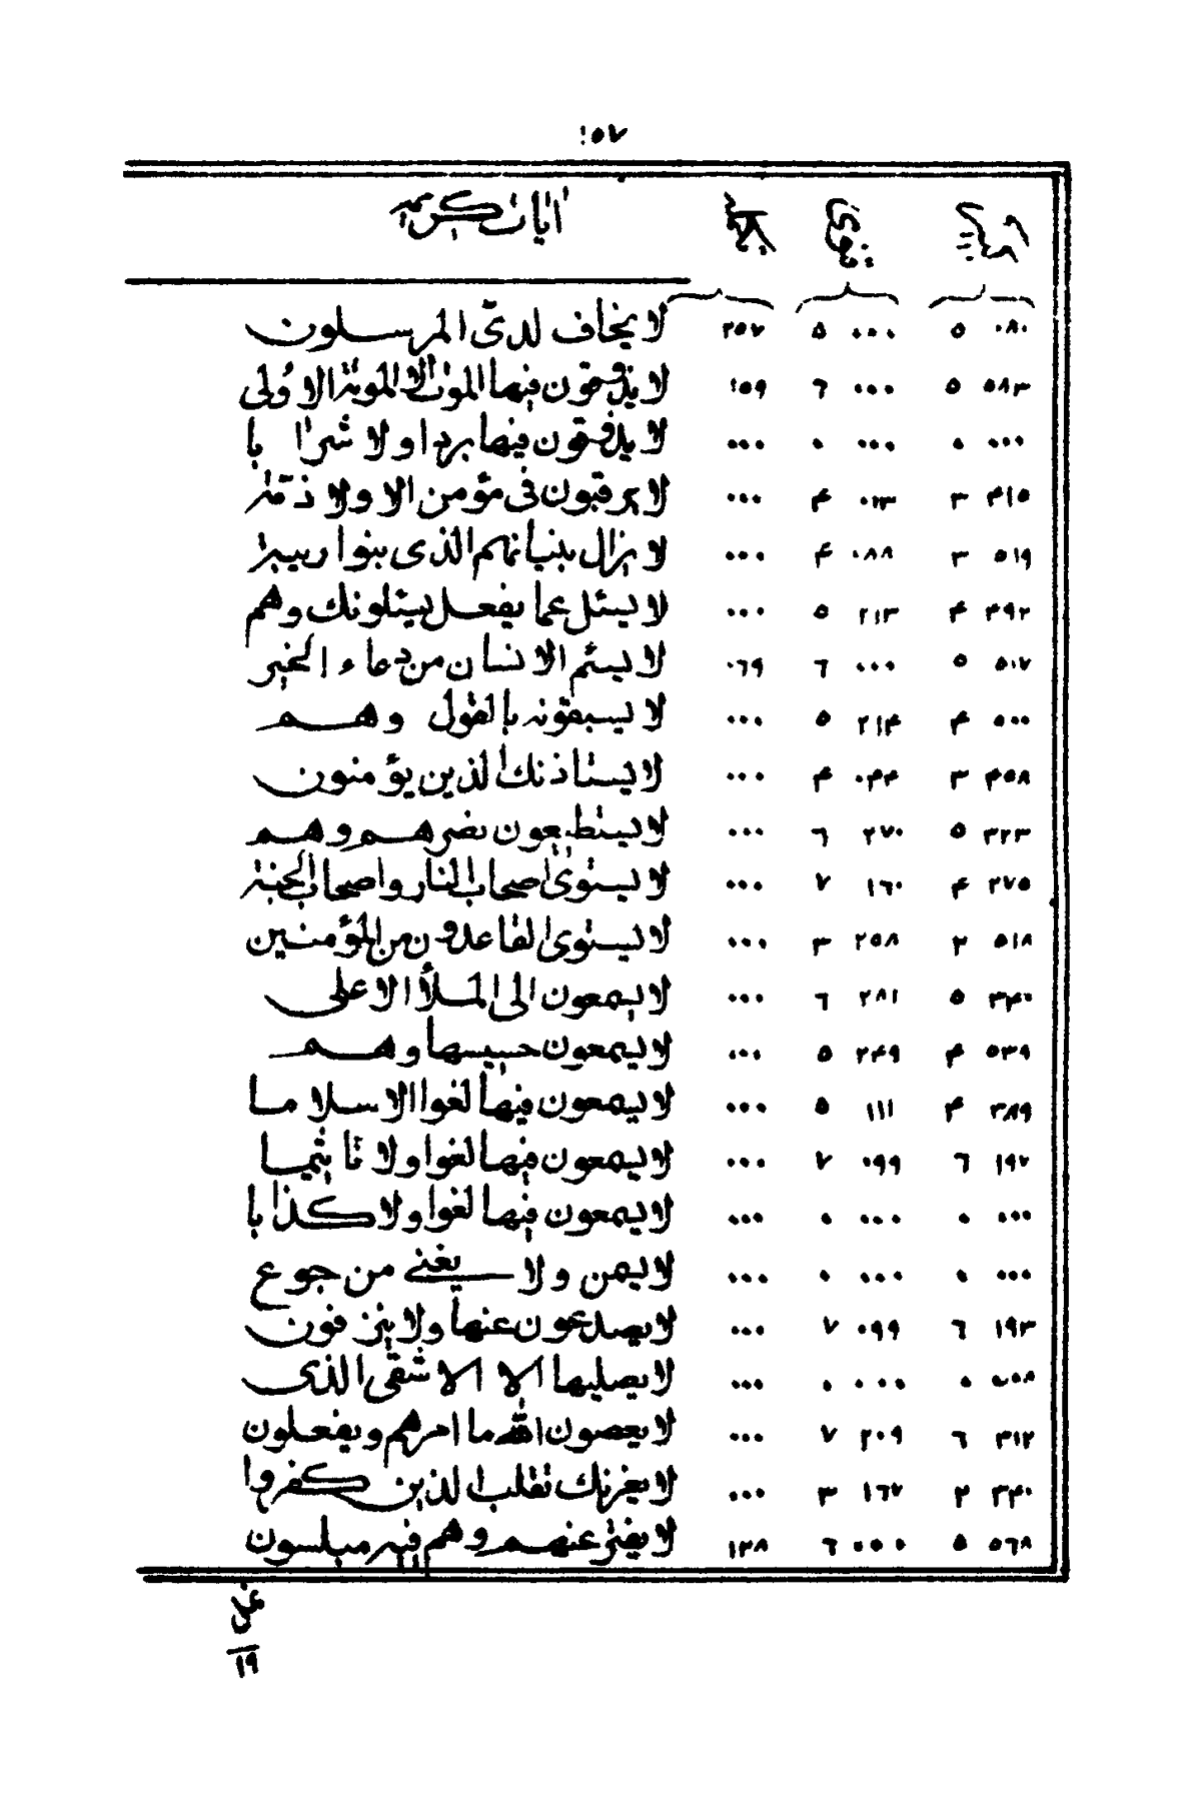 ١٥٧
آیات کریمه
٠٨٠ ٥ ٠٠٠ ٥ ٢٥٧ لا یخاف لدیّ المرسلون
٥٨٣ ٥ ٠٠٠ ٦ ١٥٩ لا یذوقون فیها الموت الا الموتة الاولی
٠٠٠ ٠ ٠٠٠ ٠ ٠٠٠ لا یذوقون فیها بردا و لا شرابا
۴١٥ ٣ ٠١٣ ۴ ٠٠٠ لا یرقبون فی مؤمن الا و لا ذمّة
٥١٩ ٣ ٠٨٨ ۴ ٠٠٠ لا یزال بنیانهم الذی بنوا ریبة
۴٩٢ ۴ ٢١٣ ٥ ٠٠٠ لا یسئل عما یفعل یسئلونك و هم
٥٠٧ ٥ ٠٠٠ ٦ ٠٦٩ لا یسئم الانسان من دعاء الخیر
٥٠٠ ۴ ٢١۴ ٥ ٠٠٠ لا یسبقونه بالقول و هم
۴٥٨ ٣ ٠۴۴ ۴ ٠٠٠ لا یستاذنك الذین یؤمنون
٣٢٣ ٥ ٢٧٠ ٦ ٠٠٠ لا یستطیعون نصرهم و هم
٢٧٥ ۴ ١٦٠ ٧ ٠٠٠ لا یستوی اصحاب النار و اصحاب الجنة
٥١٨ ٢ ٢٥٨ ٣ ٠٠٠ لا یستوی القاعدون من المؤمنین
٣۴٠ ٥ ٢٨١ ٦ ٠٠٠ لا یسمعون الی الملأ الاعلی
٥٣٩ ۴ ٢۴٩ ٥ ٠٠٠ لا یسمعون حسیسها و هم
٣٨٩ ۴ ١١١ ٥ ٠٠٠ لا یسمعون فیها لغوا الا سلاما
١٩٢ ٦ ٠٩٩ ٧ ٠٠٠ لا یسمعون فیها لغوا و لا تاثیما
٠٠٠ ٠ ٠٠٠ ٠ ٠٠٠ لا یسمعون فیها لغوا و لا كذابا
٠٠٠ ٠ ٠٠٠ ٠ ٠٠٠ لا یسمن و لا یغنی من جوع
١٩٣ ٦ ٠٩٩ ٧ ٠٠٠ لا یصدعون عنها و لا ینزفون
٠ ٠٠٠ ٠ ٠٠٠ لا یصلیها الا الاشقی الذی
٣١٢ ٦ ٢٠٩ ٧ ٠٠٠ لا یعصون الله ما امرهم و یفعلون
٣۴٠ ٢ ١٦٧ ٣ ٠٠٠ لا یغرنك تقلب الذین كفروا
٥٦٨ ٥ ٠٠٠ ٦ ١٣٨ لا یفتر عنهم و هم فیه مبلسون
١٩